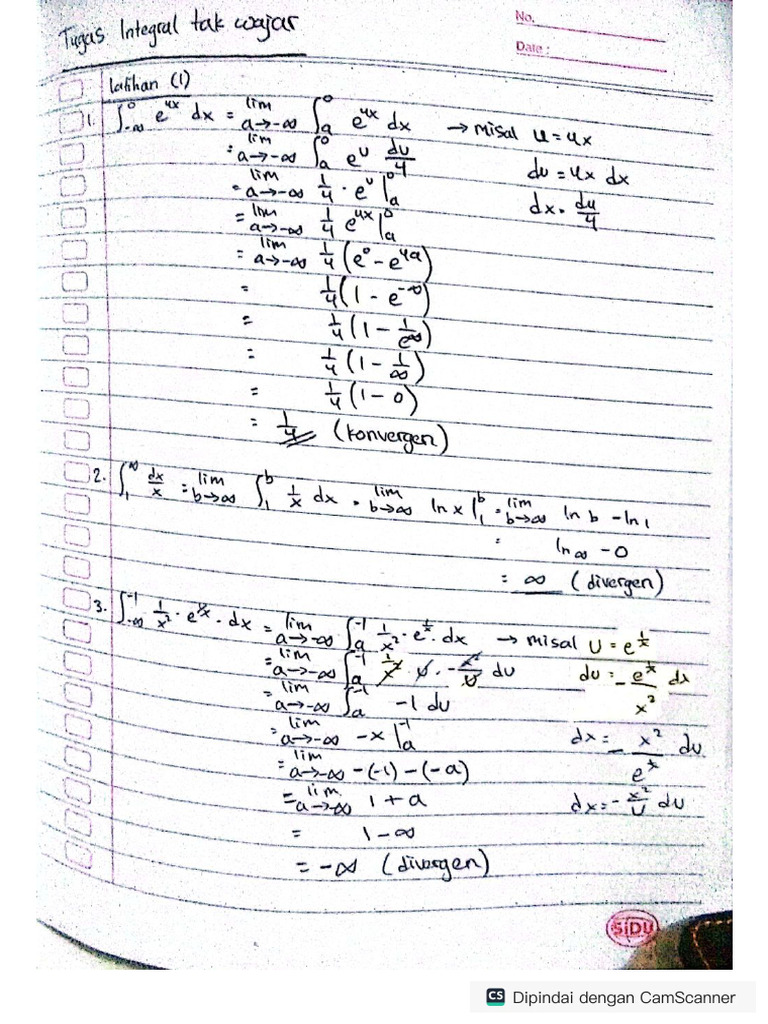 Tugas Integral tak wajar
No.
Date :
latihan (1)
1. ∫_{-∞}^{0} e^{4x} dx = lim_{a→-∞} ∫_{a}^{0} e^{4x} dx → misal u = 4x
= lim_{a→-∞} ∫_{a}^{0} e^{u} du/4 du = 4x dx
= lim_{a→-∞} 1/4 · e^{u} |_{a}^{0} dx = du/4
= lim_{a→-∞} 1/4 e^{4x} |_{a}^{0}
= lim_{a→-∞} 1/4 (e^{0} - e^{4a})
= 1/4 (1 - e^{-∞})
= 1/4 (1 - 1/e^{∞})
= 1/4 (1 - 1/∞)
= 1/4 (1 - 0)
= 1/4 (konvergen)
2. ∫_{1}^{∞} dx/x = lim_{b→∞} ∫_{1}^{b} 1/x dx = lim_{b→∞} ln x |_{1}^{b} = lim_{b→∞} ln b - ln 1
= ln ∞ - 0
= ∞ (divergen)
3. ∫_{-∞}^{-1} 1/x² · e^{1/x} · dx = lim_{a→-∞} ∫_{a}^{-1} 1/x² · e^{1/x} · dx → misal u = e^{1/x}
= lim_{a→-∞} ∫_{a}^{-1} 1/x² · u · - x²/u du du = - e^{1/x}/x² dx
= lim_{a→-∞} ∫_{a}^{-1} -1 du
= lim_{a→-∞} -x |_{a}^{-1} dx = - x²/e^{1/x} du
= lim_{a→-∞} -(-1) - (-a)
= lim_{a→-∞} 1 + a dx = - x²/u du
= 1 - ∞
= -∞ (divergen)
SiDU
CS Dipindai dengan CamScanner